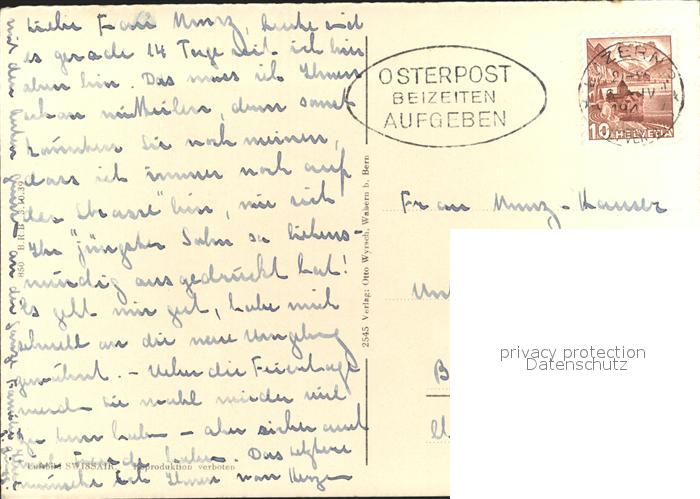 Liebe Frau Munz, heute sind
es gerade 14 Tage seit ich hin
oben bin. Das muss ich Ihnen
schon mitteilen, denn sonst
könnten Sie noch meinen,
dass ich immer noch auf
der "Strasse" bin, wie sich
Ihr "jüngster Sohn so liebens-
würdig ausgedrückt hat!
Es geht mir gut, habe mich
schnell an die neue Umgebung
gewöhnt. - Ueber die Feiertage
werden Sie wohl wieder viel
zu tun haben - aber sicher auch
Freude haben. Das letztere
wünsche ich Ihnen von Herzen
mit den lieben an die ganze Familie
850 B.R.B. 3.10.39
Luftbild SWISSAIR. Reproduktion verboten
2545 Verlag: Otto Wyrsch, Wabern b. Bern
OSTERPOST
BEIZEITEN
AUFGEBEN
LUZERN
10 HELVETIA
Frau Munz-Hauser
Unt
B
privacy protection
Datenschutz